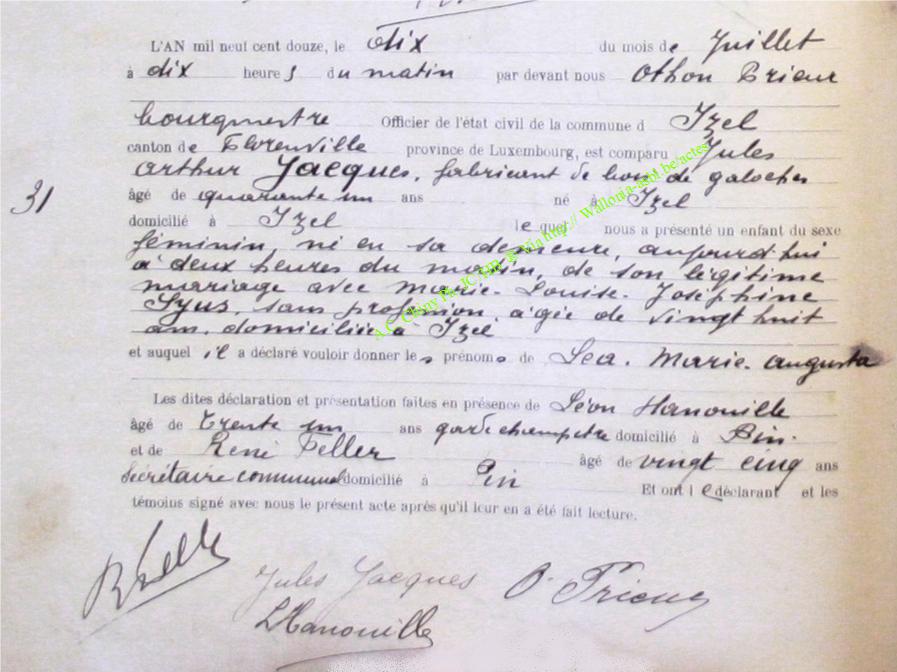 L'AN mil neuf cent douze, le dix du mois de Juillet
à dix heures du matin par devant nous Othon Prieur
bourgmestre Officier de l'état civil de la commune d Izel
canton de Florenville province de Luxembourg, est comparu Jules
Arthur Jacques, fabricant de bois de galoches
âgé de quarante un ans né à Izel
31
domicilié à Izel lequel nous a présenté un enfant du sexe
féminin, né en sa demeure, aujourd'hui
à deux heures du matin, de son légitime
mariage avec Marie-Louise-Joséphine
sans profession, âgée de vingt huit
ans, domiciliée à Izel
et auquel il a déclaré vouloir donner les prénoms de Lea-Marie-Augusta
Les dites déclaration et présentation faites en présence de Léon Hanouille
âgé de trente un ans garde champêtre domicilié à Pin
et de René Feller âgé de vingt cinq ans
Secrétaire communal domicilié à Pin Et ont le déclarant et les
témoins signé avec nous le présent acte après qu'il leur en a été fait lecture.
RFeller
Jules Jacques O. Prieur
LHanouille